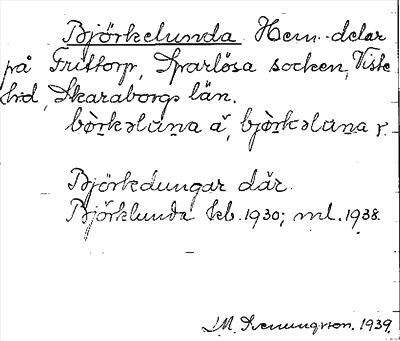 Björkelunda Hem.-delar
på Frittorp, Sparlösa socken, Viste
hrd, Skaraborgs län.
bø̀rkəlūna ä̆, bjø̀rkəlūna r.
Björkdungar där.
Björklunda kb. 1930; ml. 1938.
1939.